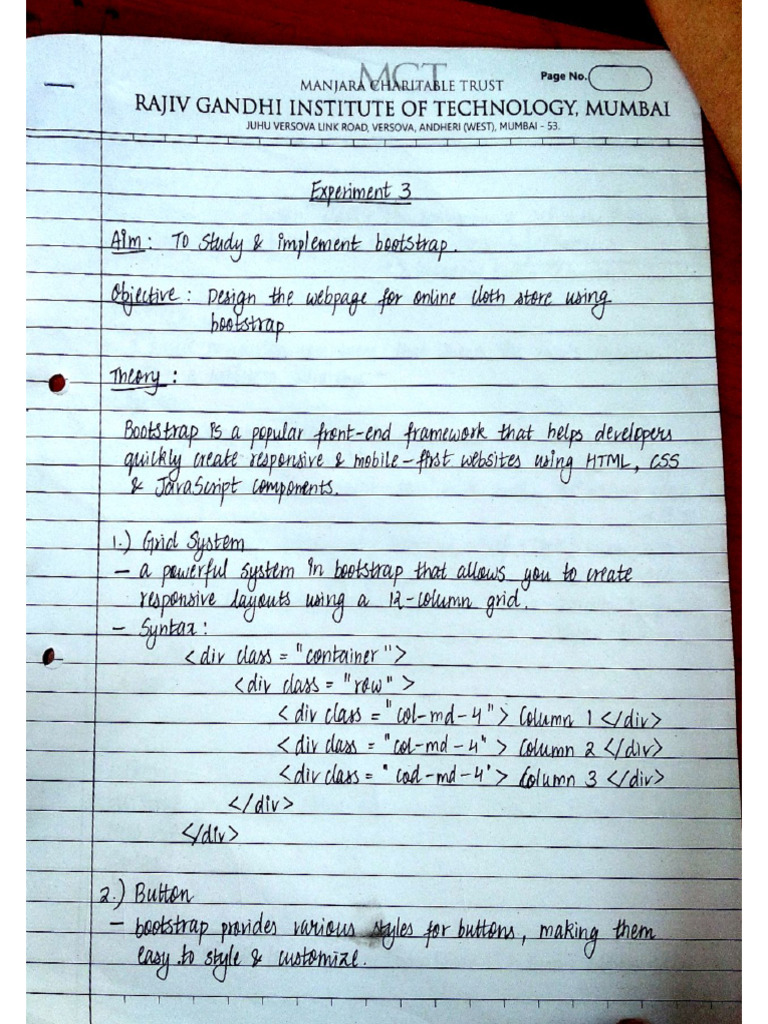 MCT
MANJARA CHARITABLE TRUST
Page No.
RAJIV GANDHI INSTITUTE OF TECHNOLOGY, MUMBAI
JUHU VERSOVA LINK ROAD, VERSOVA, ANDHERI (WEST), MUMBAI - 53.
Experiment 3
Aim : To study & implement bootstrap.
Objective : Design the webpage for online cloth store using
bootstrap
Theory :
Bootstrap is a popular front-end framework that helps developers
quickly create responsive & mobile-first websites using HTML, CSS
& JavaScript components.
1.) Grid System
- a powerful system in bootstrap that allows you to create
responsive layouts using a 12-column grid.
- Syntax :
<div class = "container">
<div class = "row" >
<div class = "col-md-4" > Column 1 </div>
<div class = "col-md-4" > Column 2 </div>
<div class = "cod-md-4" > Column 3 </div>
</div>
</div>
2.) Button
- bootstrap provides various styles for buttons, making them
easy to style & customize.